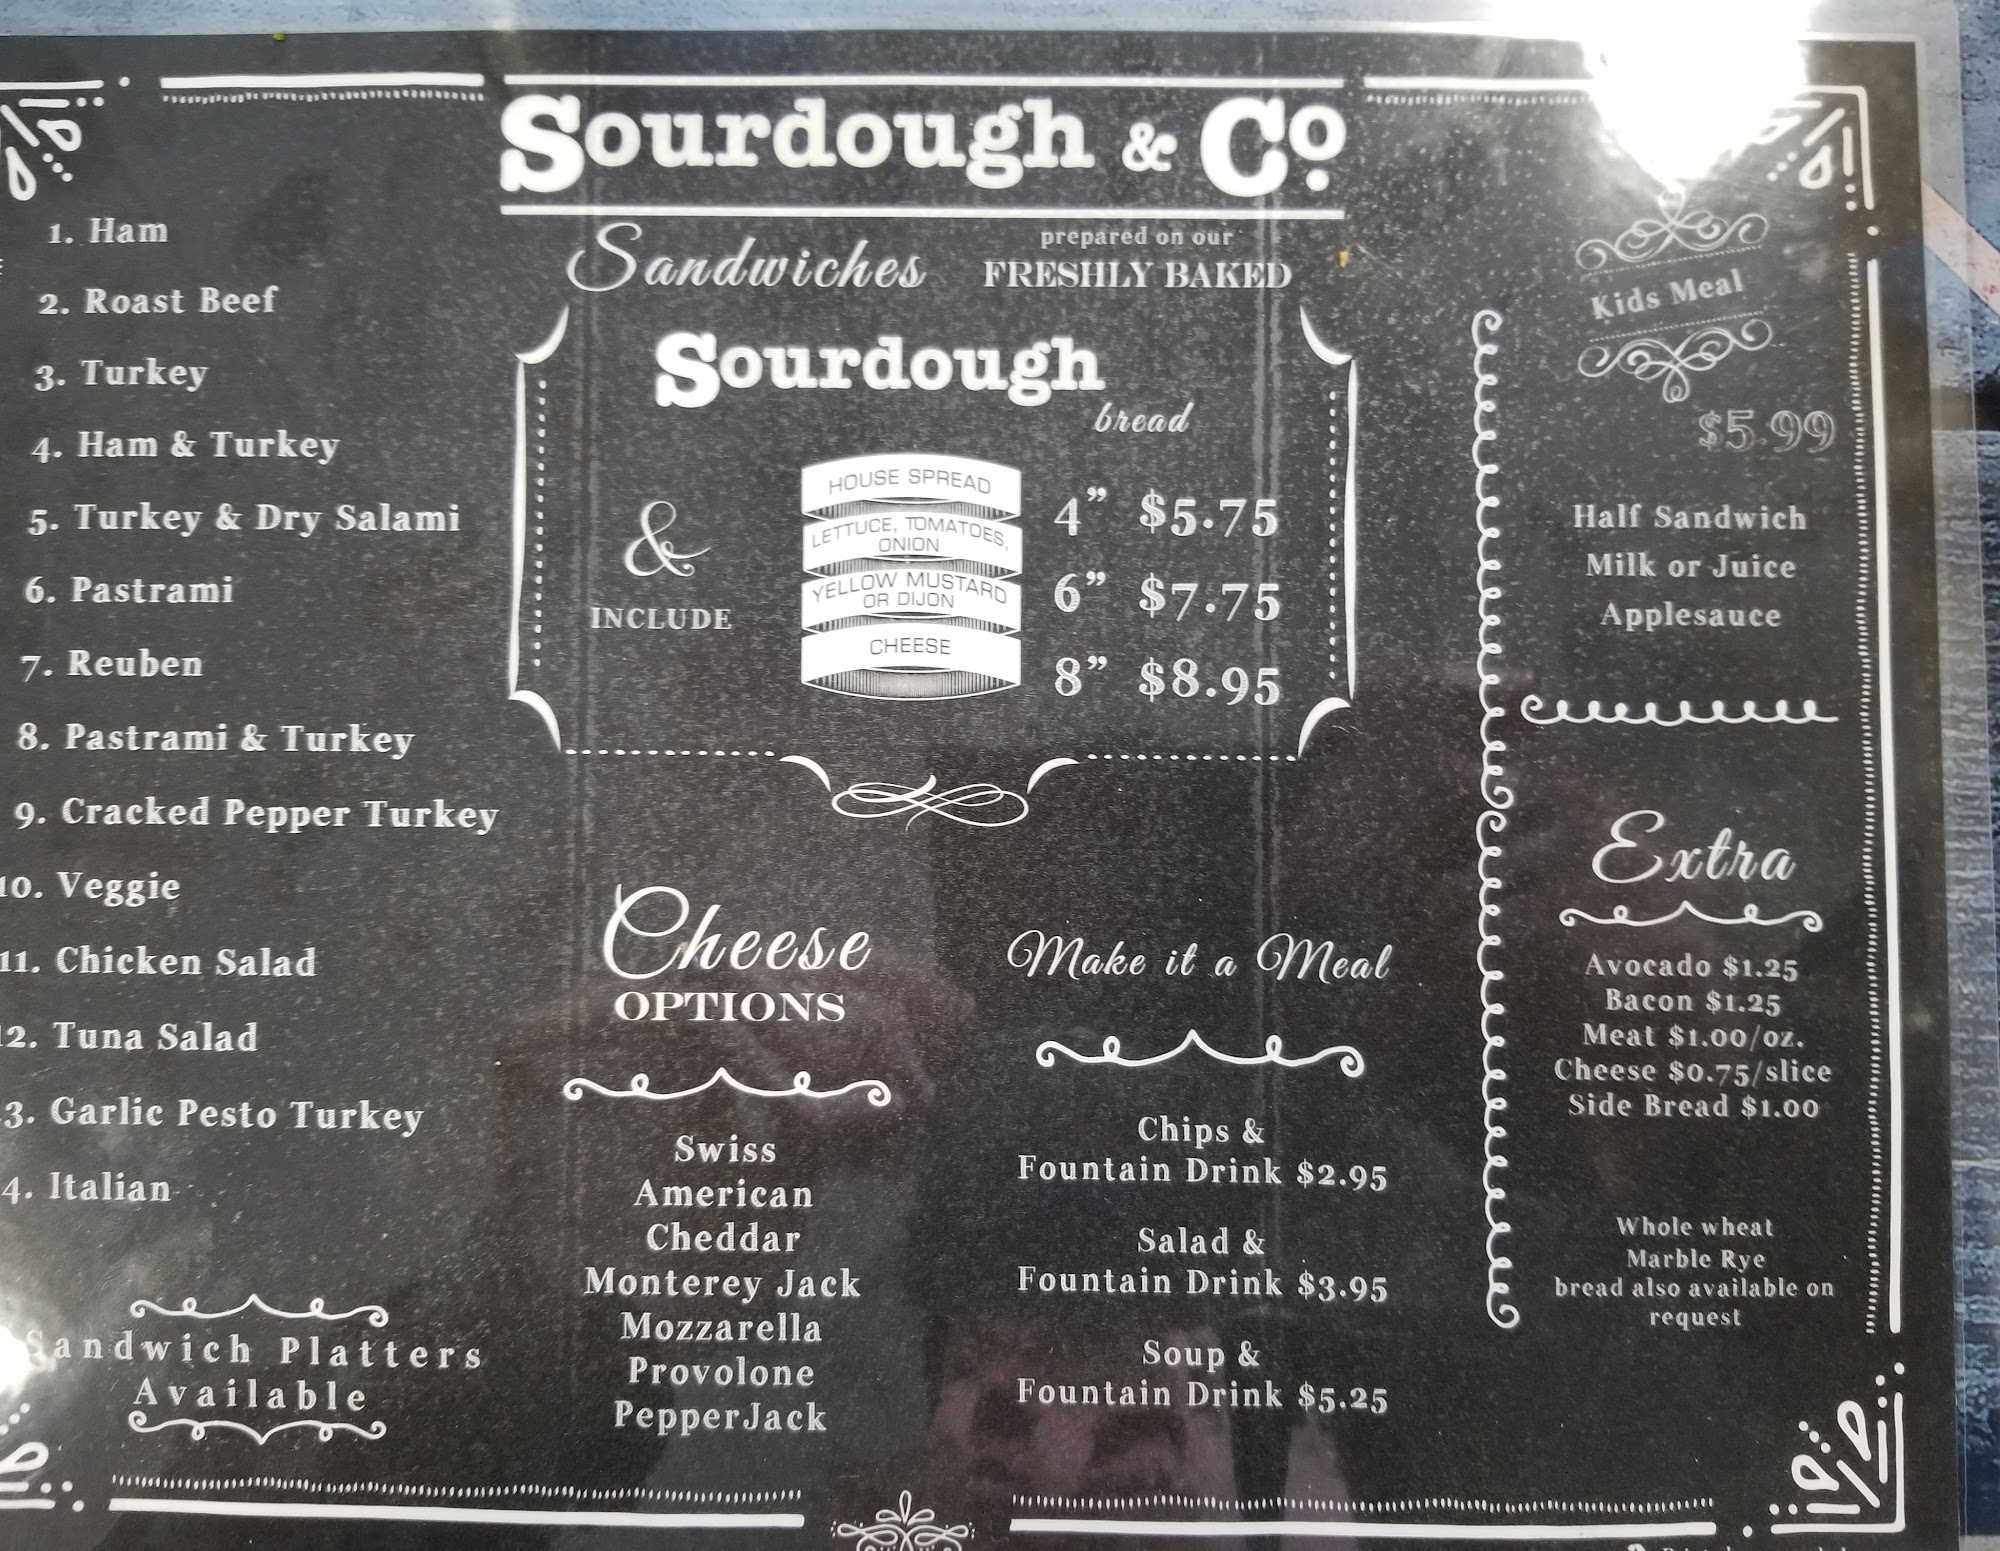 Sourdough & Co.
1. Ham
2. Roast Beef
3. Turkey
4. Ham & Turkey
5. Turkey & Dry Salami
6. Pastrami
7. Reuben
8. Pastrami & Turkey
9. Cracked Pepper Turkey
10. Veggie
11. Chicken Salad
12. Tuna Salad
3. Garlic Pesto Turkey
4. Italian
Sandwich Platters
Available
Sandwiches
prepared on our
FRESHLY BAKED
Sourdough
bread
&
INCLUDE
HOUSE SPREAD
LETTUCE, TOMATOES,
ONION
YELLOW MUSTARD
OR DIJON
CHEESE
4” $5.75
6” $7.75
8” $8.95
Cheese
OPTIONS
Swiss
American
Cheddar
Monterey Jack
Mozzarella
Provolone
PepperJack
Make it a Meal
Chips &
Fountain Drink $2.95
Salad &
Fountain Drink $3.95
Soup &
Fountain Drink $5.25
Kids Meal
$5.99
Half Sandwich
Milk or Juice
Applesauce
Extra
Avocado $1.25
Bacon $1.25
Meat $1.00/oz.
Cheese $0.75/slice
Side Bread $1.00
Whole wheat
Marble Rye
bread also available on
request